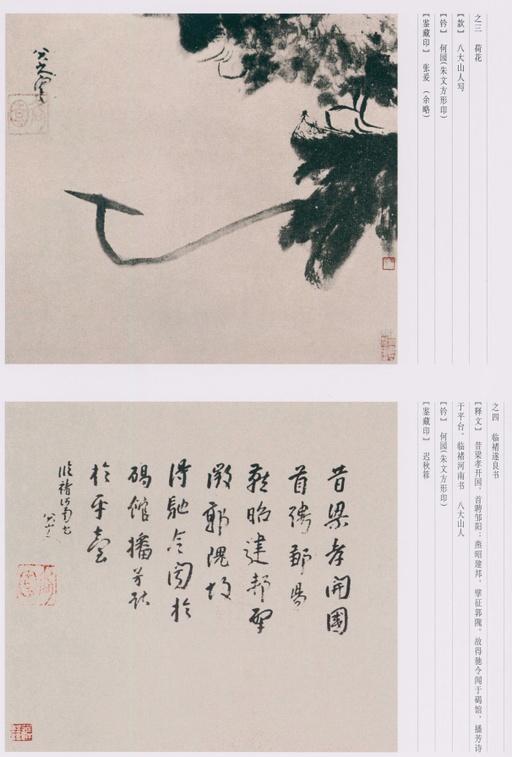 之三　荷花
【款】八大山人写
【钤】何园(朱文方形印)
【鉴藏印】张爰　(余略)
八大山人写
之四　临褚遂良书
【释文】昔梁孝开国，首聘邹阳；燕昭建邦，肇征郭隗。故得驰令闻于碣馆，播芳诗
于平台。临褚河南书　八大山人
【钤】何园(朱文方形印)
【鉴藏印】迟秋籍
昔梁孝开國
首聘鄒陽
燕昭建邦肇
徵郭隗故
得馳令聞於
碣館播芳詩
於平臺
临褚河南书
八大山人